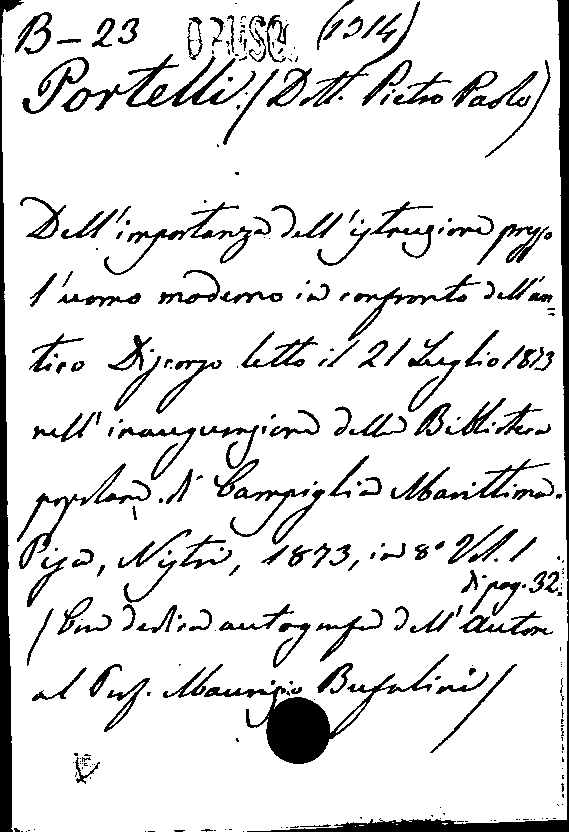 B-23 OPUSC. (1314)
Portelli (Dott. Pietro Paolo)
Dell'importanza dell'istruzione presso
l'uomo moderno in confronto dell'an=
tico Discorso letto il 21 Luglio 1873
nell'inaugurazione della Biblioteca
popolare di Campiglia Marittima.
Pisa, Nistri, 1873, in 8° Vol. 1
di pag. 32.
(Con dedica autografa dell'Autore
al Prof. Maurizio Bufalini)